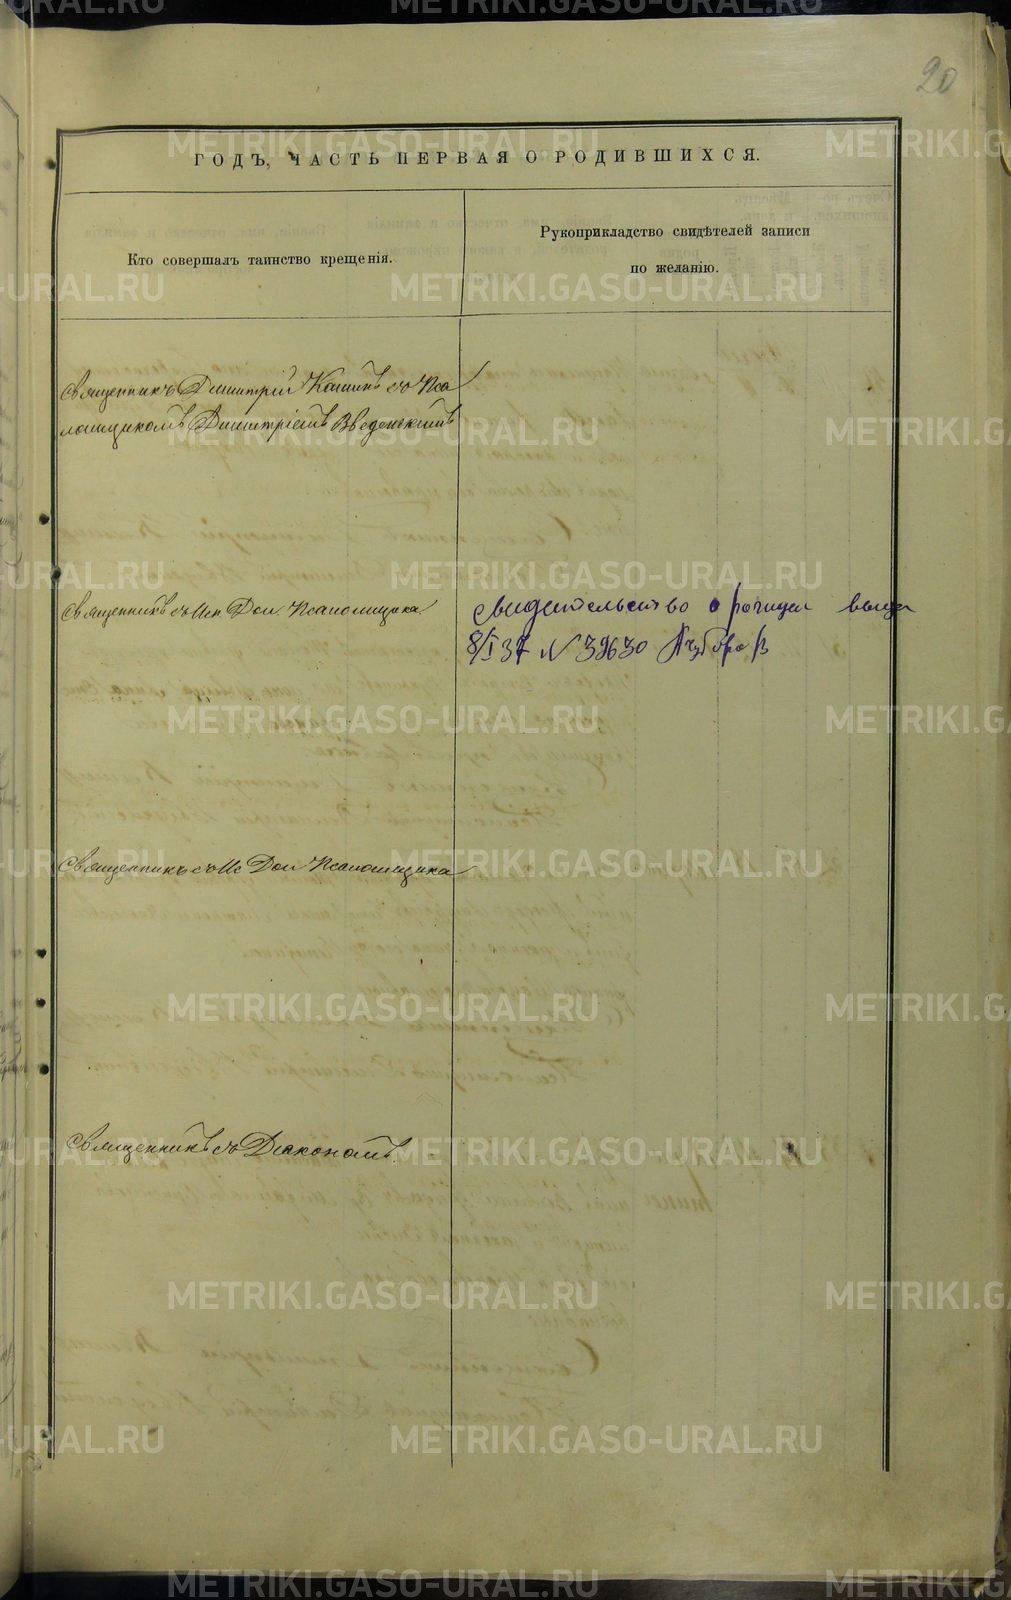 20
ГОДЪ, ЧАСТЬ ПЕРВАЯ О РОДИВШИХСЯ.
Кто совершалъ таинство крещенія.
Рукоприкладство свидѣтелей записи
по желанію.
Священникъ Димитрій Кашинъ съ Пса
ломщикомъ Димитріемъ Введенскимъ
Священникъ съ Исп Дол Псаломщика
Свидетельство о рожден выдан
8/I 37 N 39630
Священникъ съ Ис Дол Псаломщика
Священникъ съ Діакономъ.
METRIKI.GASO-URAL.RU